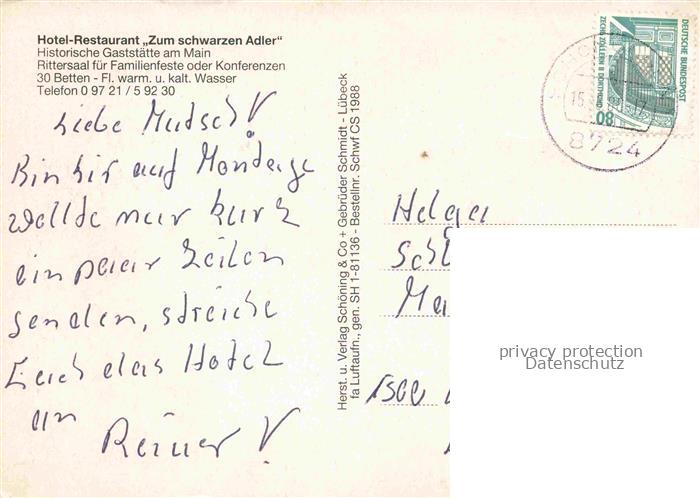 Hotel-Restaurant „Zum schwarzen Adler“
Historische Gaststätte am Main
Rittersaal für Familienfeste oder Konferenzen
30 Betten - Fl. warm. u. kalt. Wasser
Telefon 0 97 21 / 5 92 30
Liebe Mutsch!
Bin hir auf Montage
wollte nur kurz
ein paar Zeilen
senden, streiche
Euch das Hotel
an
Reiner!
Herst. u. Verlag Schöning & Co + Gebrüder Schmidt - Lübeck
fa Luftaufn., gen. SH 1-81136 - Bestellnr. Schwf CS 1988
DEUTSCHE BUNDESPOST
ZECHE ZOLLERN II DORTMUND
80
15
17
8724
Helga
privacy protection
Datenschutz